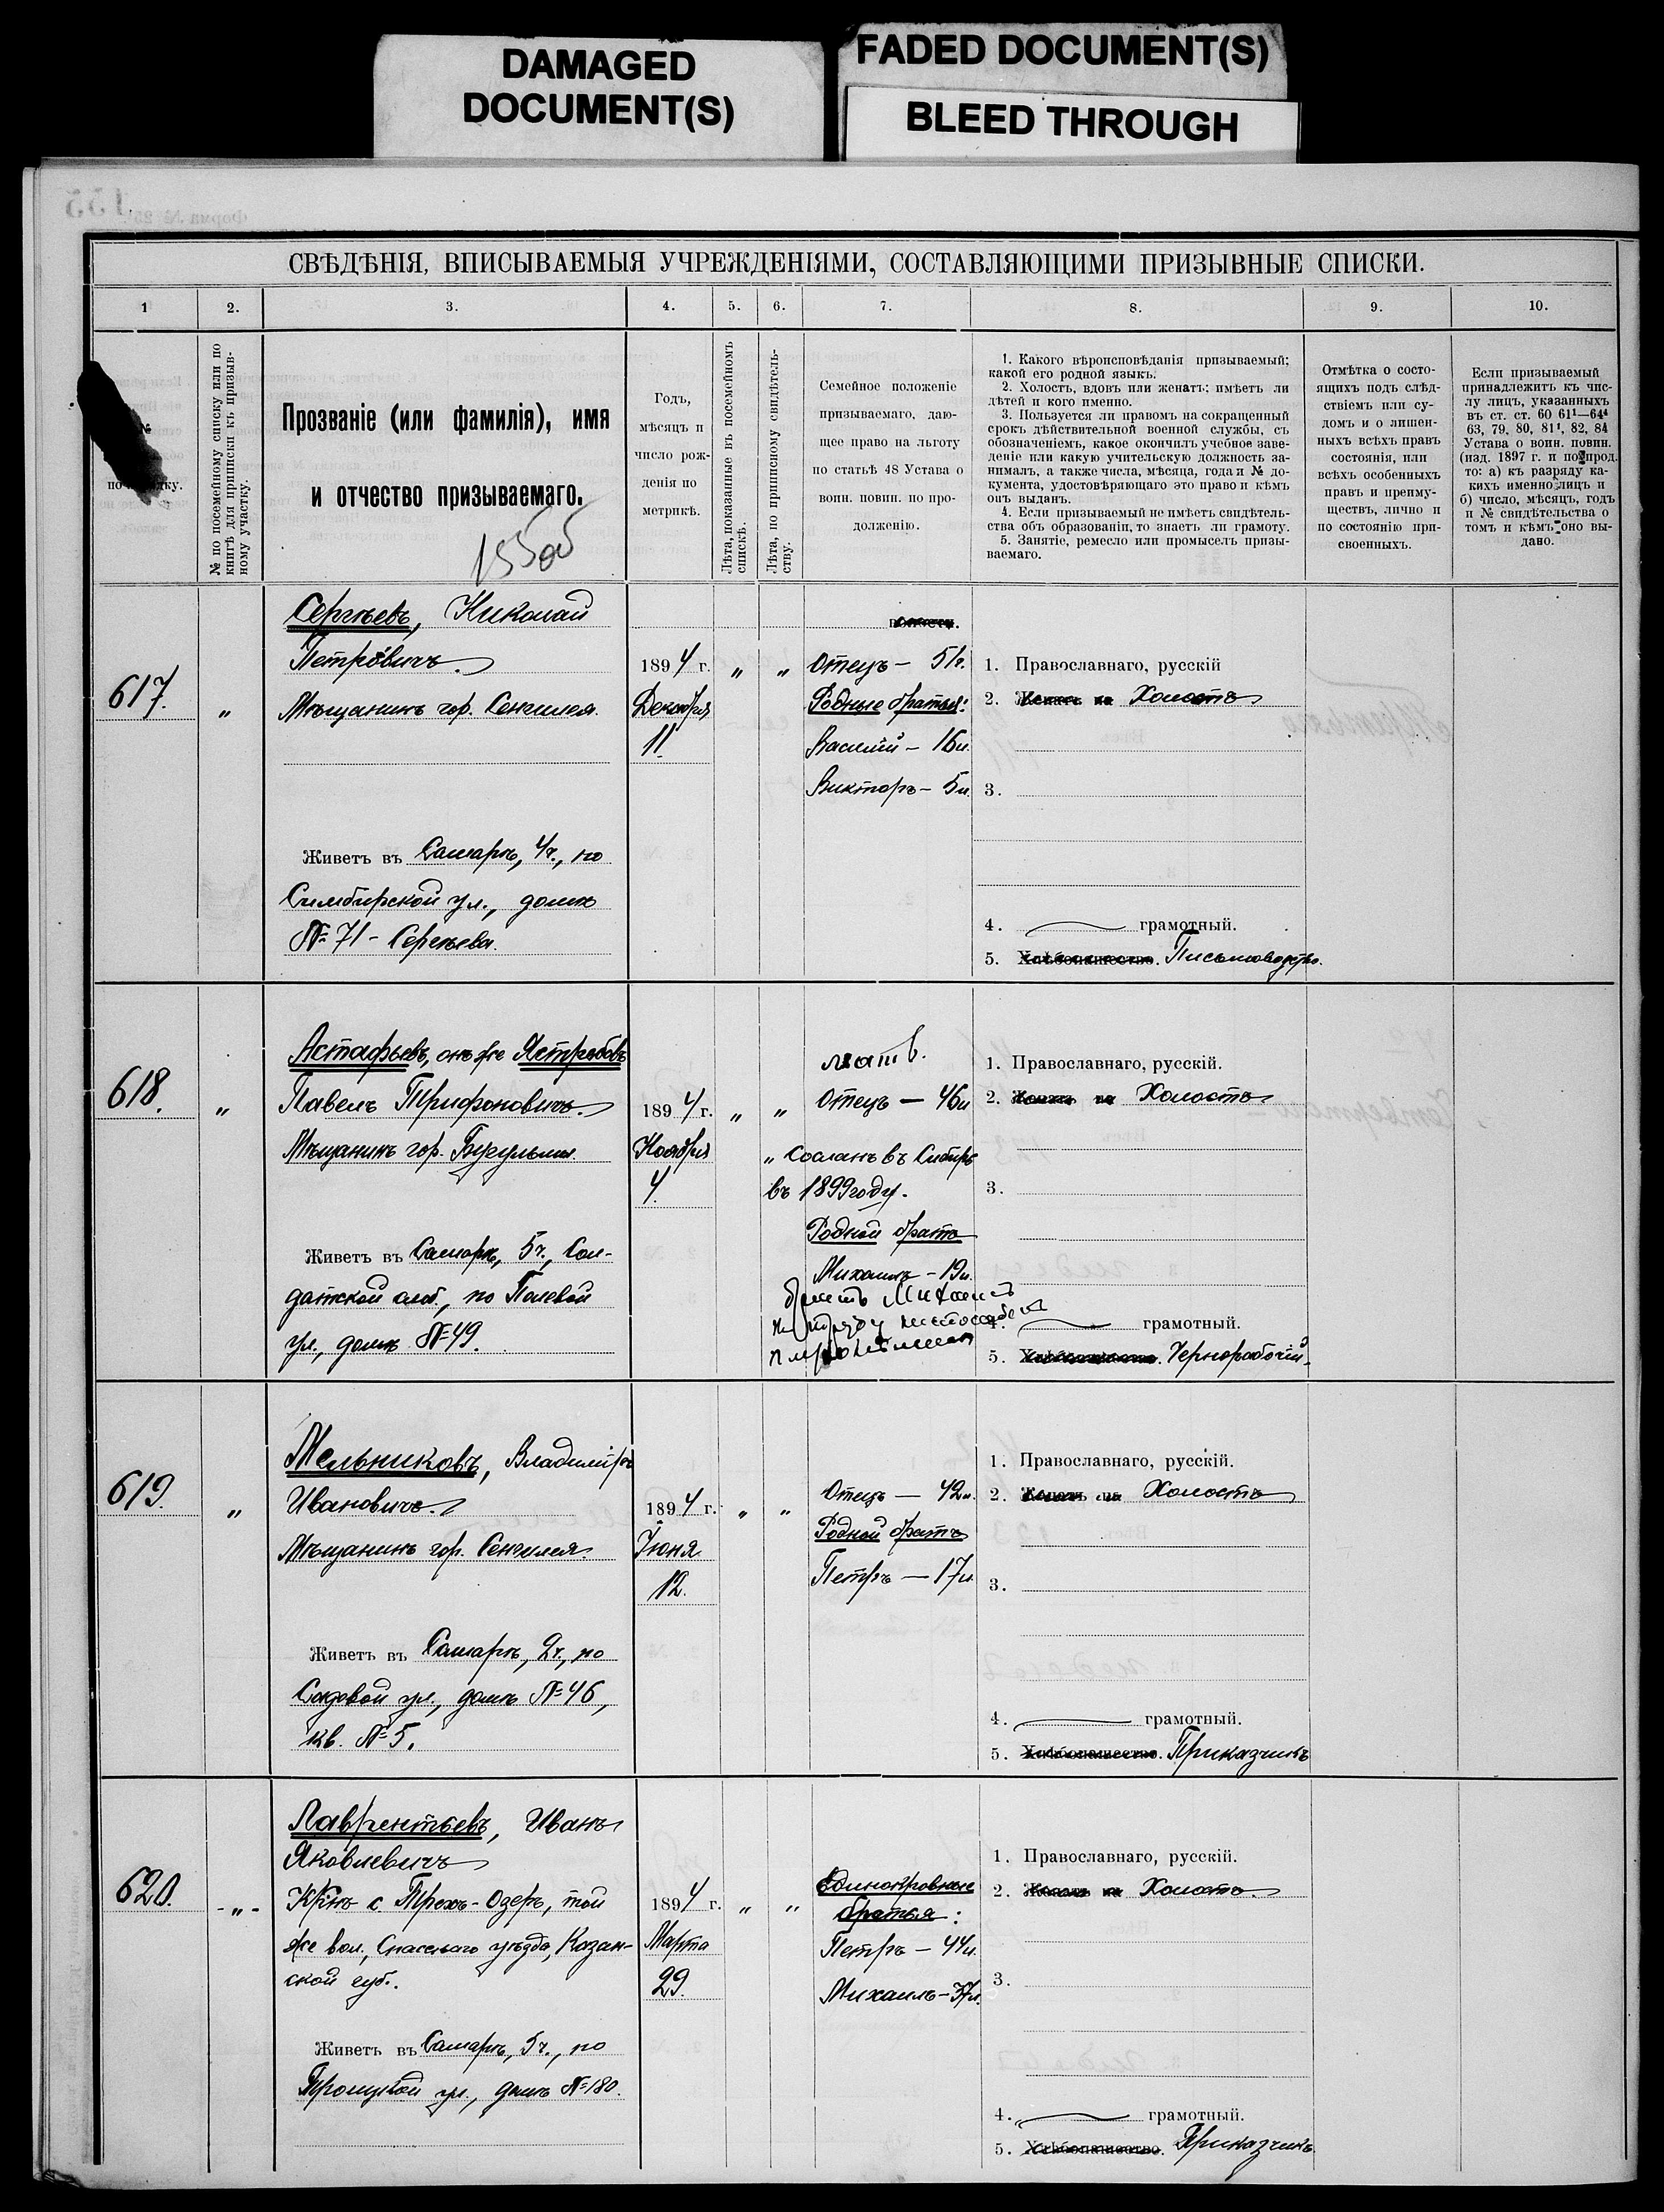 DAMAGED
DOCUMENT(S)
FADED DOCUMENT(S)
BLEED THROUGH
СВѢДѢНІЯ, ВПИСЫВАЕМЫЯ УЧРЕЖДЕНІЯМИ, СОСТАВЛЯЮЩИМИ ПРИЗЫВНЫЕ СПИСКИ.
1 2. 3. 4. 5. 6. 7. 8. 9. 10.
№
№ по посемейному списку или по
книгѣ для приписки къ призыв-
ному участку.
Прозваніе (или фамилія), имя
и отчество призываемаго.
155об
Годъ,
мѣсяцъ и
число рож-
денія по
метрикѣ.
Лѣта, показанные въ посемейномъ
спискѣ.
Лѣта, по приписному свидѣтель-
ству.
Семейное положеніе
призываемаго, даю-
щее право на льготу
по статьѣ 48 Устава о
воин. повин. по про-
долженію.
1. Какого вѣроисповѣданія призываемый;
какой его родной языкъ.
2. Холостъ, вдовъ или женатъ; имѣетъ ли
дѣтей и кого именно.
3. Пользуется ли правомъ на сокращенный
срокъ дѣйствительной военной службы, съ
обозначеніемъ, какое окончилъ учебное заве-
деніе или какую учительскую должность за-
нималъ, а также числа, мѣсяца, года и № до-
кумента, удостовѣряющаго это право и кѣмъ
онъ выданъ.
4. Если призываемый не имѣетъ свидѣтель-
ства объ образованіи, то знаетъ ли грамоту.
5. Занятіе, ремесло или промыселъ призы-
ваемаго.
Отмѣтка о состо-
ящихъ подъ слѣд-
ствіемъ или су-
домъ и о лишен-
ныхъ всѣхъ правъ
состоянія, или
всѣхъ особенныхъ
правъ и преиму-
ществъ, лично и
по состоянію при-
своенныхъ.
Если призываемый
принадлежитъ къ чис-
лу лицъ, указанныхъ
въ ст. ст. 60 61¹—64⁴
63, 79, 80, 81¹, 82, 84
Устава о воин. повин.
(изд. 1897 г. и по прод.
то: а) къ разряду ка-
кихъ именно лицъ и
б) число, мѣсяцъ, годъ
и № свидѣтельства о
томъ и кѣмъ оно вы-
дано.
617.
"
Сергѣевъ, Николай
Петровичъ.
Мѣщанинъ гор. Сенгилея.
Живетъ въ Самарѣ, 4 ч., по
Симбирской ул., домъ
№ 71 - Сергѣева.
1894 г.
Декабря
11.
" "
Отецъ — 51 г.
Родные братья:
Василій — 16 л.
Викторъ — 5 л.
1. Православнаго, русскій
2. Женатъ на Холостъ
3.
4. грамотный.
5. Хлѣбопашество. Письмоводство.
618.
"
Астафьевъ, онъ же Ястребовъ
Павелъ Трифоновичъ.
Мѣщанинъ гор. Бугульмы.
Живетъ въ Самарѣ, 5 ч., Сол-
датской слоб., по Полевой
ул., домъ № 49.
1894 г.
Ноября
4.
" "
Отецъ — 46 л.
" Сосланъ въ Сибирь
въ 1899 году.
Родной братъ
Михаилъ — 19 л.
братъ Михаилъ
1. Православнаго, русскій.
2. Женатъ на Холостъ
3.
4. грамотный.
5. Хлѣбопашество. Чернорабочій.
619.
"
Мельниковъ, Владиміръ
Ивановичъ.
Мѣщанинъ гор. Сенгилея.
Живетъ въ Самарѣ, 2 ч., по
Садовой ул., домъ № 46,
кв. № 5.
1894 г.
Іюня
12.
" "
Отецъ — 42 л.
Родной братъ
Петръ — 17 л.
1. Православнаго, русскій.
2. Женатъ на Холостъ
3.
4. грамотный.
5. Хлѣбопашество. Приказчикъ
620.
- " -
Лаврентьевъ, Иванъ
Яковлевичъ
Кр-нъ с. Трехъ-Озеръ, той
же вол., Спасскаго уѣзда, Казан-
ской губ.
Живетъ въ Самарѣ, 5 ч., по
Троицкой ул., домъ № 180.
1894 г.
Марта
29.
" "
Единокровные
братья:
Петръ — 44 л.
Михаилъ — 37 л.
1. Православнаго, русскій.
2. Женатъ на Холостъ.
3.
4. грамотный.
5. Хлѣбопашество. Приказчикъ.